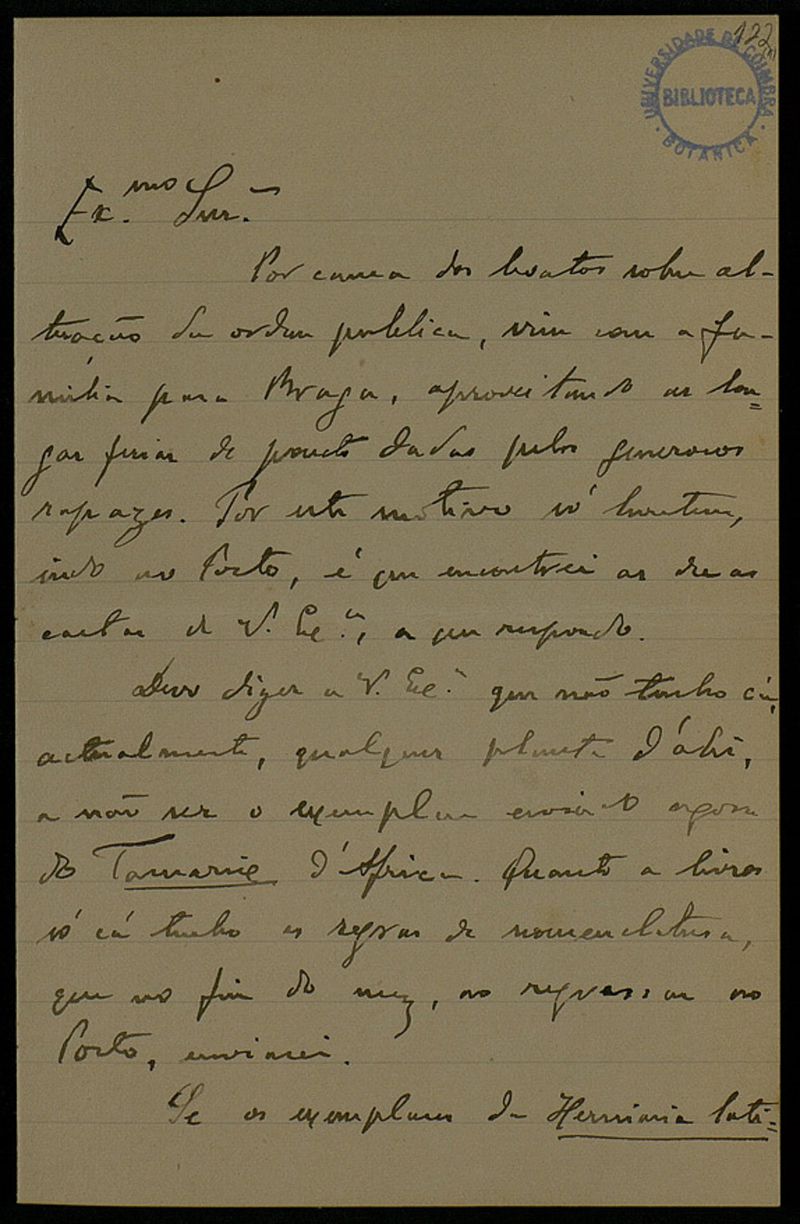 122
UNIVERSIDADE DE COIMBRA
BIBLIOTECA
BOTANICA
Ex.mo Snr.
Por causa dos boatos sobre al-
teração da ordem publica, vim com a fa-
milia para Braga, aproveitando as lon=
gas ferias de ponto dadas pelos generosos
rapazes. Por este motivo só hontem,
indo ao Porto, é que encontrei as duas
cartas de V. Ex.a, a que respondo.
Devo dizer a V. Ex.a que não tenho cá,
actualmente, qualquer planta d'ahi,
a não ser o exemplar enviado agora
do Tamarix d'Africa. Quanto a livros
só cá tenho as regras de nomenclatura,
que no fim do mez, ao regressar ao
Porto, enviarei.
Se os exemplares da Herniaria lati=